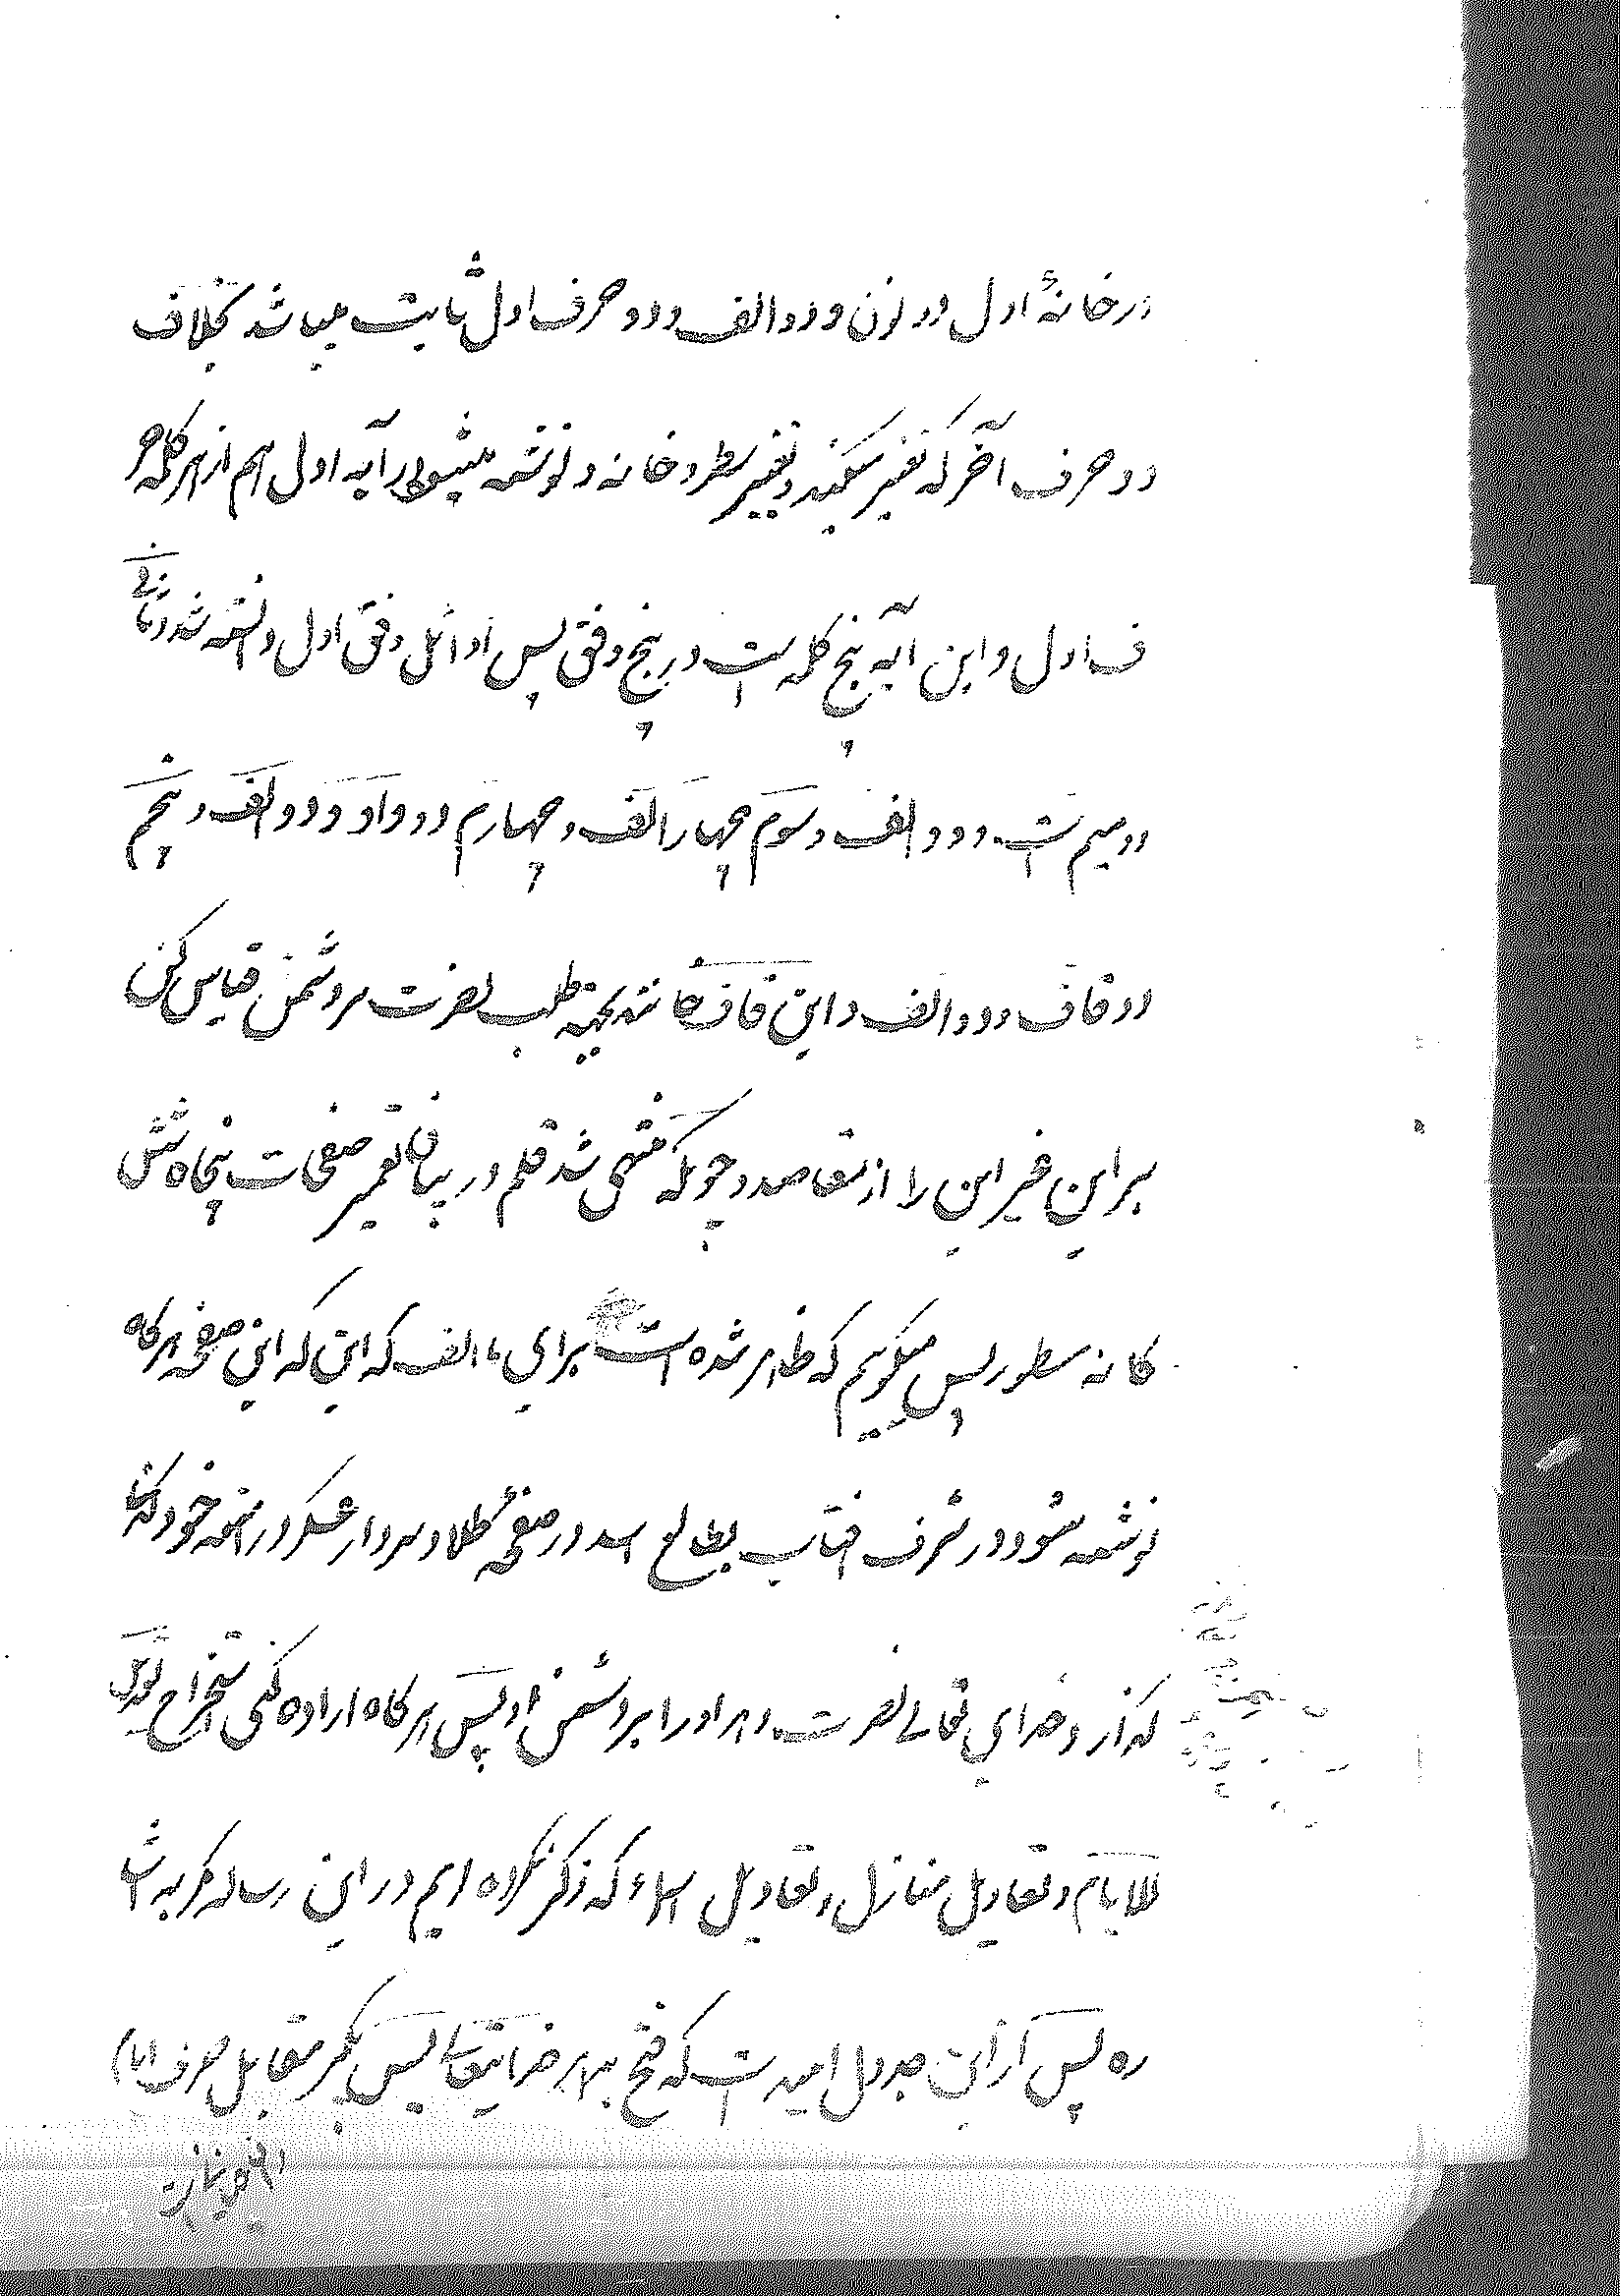 درخانهٔ اول دو نون و دو الف و دو حرف اول ثابت میباشد بخلاف
دو حرف آخر که تغیر میکنند و تغییر سطر و خانه و نوشته میشود برآیه اول هم از هر کلمه حر
ف اول و این آیه پنج کلمه است در پنج وفق پس اوائل وفق اول دانسته شد
دو میم است و دو الف و سوم چهار الف و چهارم دو واو و دو الف و پنجم
دو قاف و دو الف و این قاف بجهته طلب نصرت بر دشمن قیاس کن
براین غیر این را از مقاصد و چونکه منتهی شد قلم در بیان تعمیر صفحات پنجاه شش
کانه سطور پس میکوییم که ظاهر شده است برای ما الف که این که این صفحه هرکاه
نوشته شود در شرف افتاب بطالع اسد در صفحه طلا و سردار عسکر در خود
که از د خدای تعالی نصرت دهد اورا بر دشمن او پس هرکاه اراده کنی استخراج
للایام و تعادیل منازل و تعادیل اسماء که ذکر کرده ایم در این رساله
ره پس از این جدول امید است که فتح پس بکیر مقابل حرف ایام